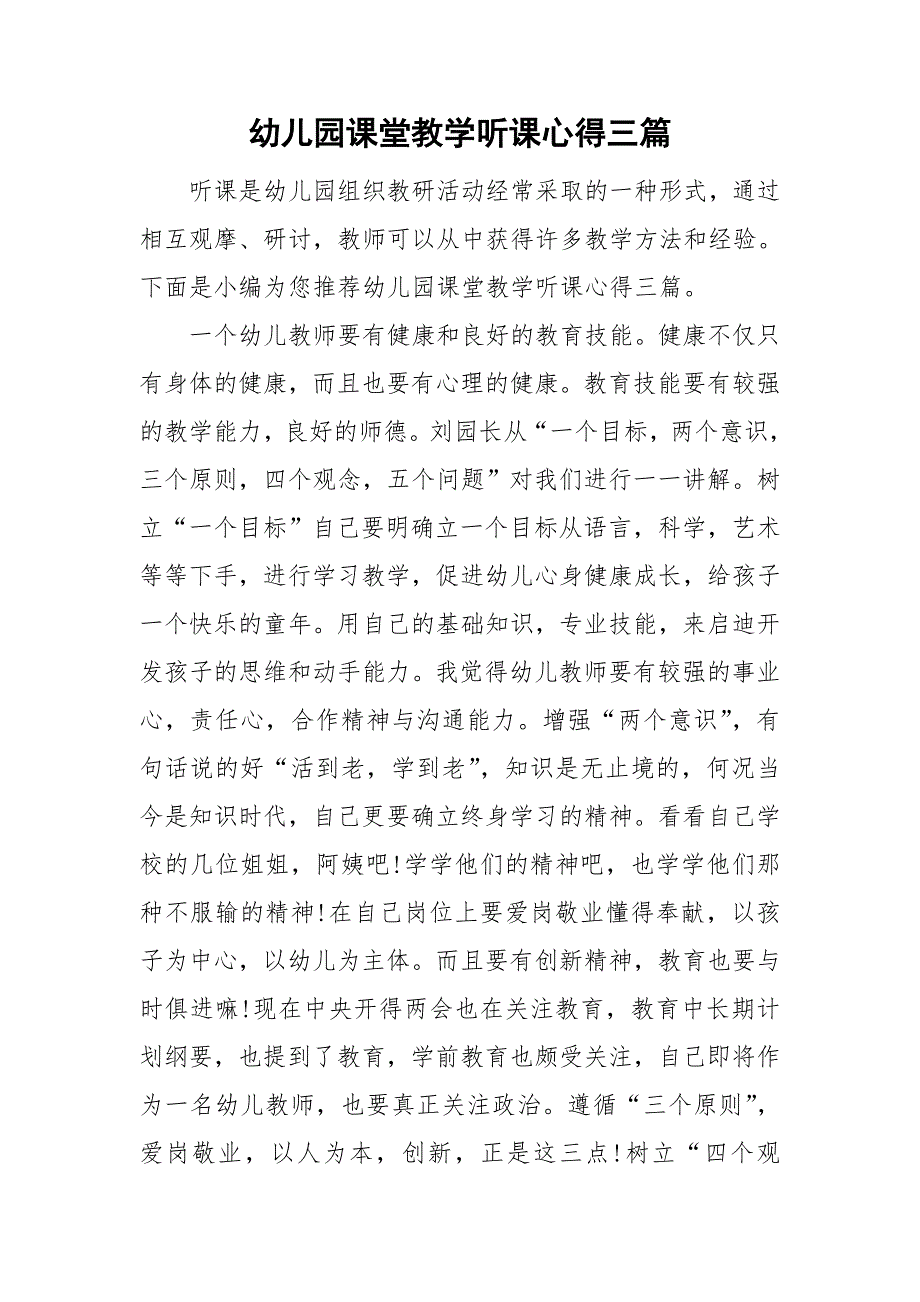 幼儿园课堂教学听课心得三篇
听课是幼儿园组织教研活动经常采取的一种形式，通过
相互观摩、研讨，教师可以从中获得许多教学方法和经验。
下面是小编为您推荐幼儿园课堂教学听课心得三篇。
一个幼儿教师要有健康和良好的教育技能。健康不仅只
有身体的健康，而且也要有心理的健康。教育技能要有较强
的教学能力，良好的师德。刘园长从“一个目标，两个意识，
三个原则，四个观念，五个问题”对我们进行一一讲解。树
立“一个目标”自己要明确立一个目标从语言，科学，艺术
等等下手，进行学习教学，促进幼儿心身健康成长，给孩子
一个快乐的童年。用自己的基础知识，专业技能，来启迪开
发孩子的思维和动手能力。我觉得幼儿教师要有较强的事业
心，责任心，合作精神与沟通能力。增强“两个意识”，有
句话说的好“活到老，学到老”，知识是无止境的，何况当
今是知识时代，自己更要确立终身学习的精神。看看自己学
校的几位姐姐，阿姨吧!学学他们的精神吧，也学学他们那
种不服输的精神!在自己岗位上要爱岗敬业懂得奉献，以孩
子为中心，以幼儿为主体。而且要有创新精神，教育也要与
时俱进嘛!现在中央开得两会也在关注教育，教育中长期计
划纲要，也提到了教育，学前教育也颇受关注，自己即将作
为一名幼儿教师，也要真正关注政治。遵循“三个原则”，
爱岗敬业，以人为本，创新，正是这三点!树立“四个观